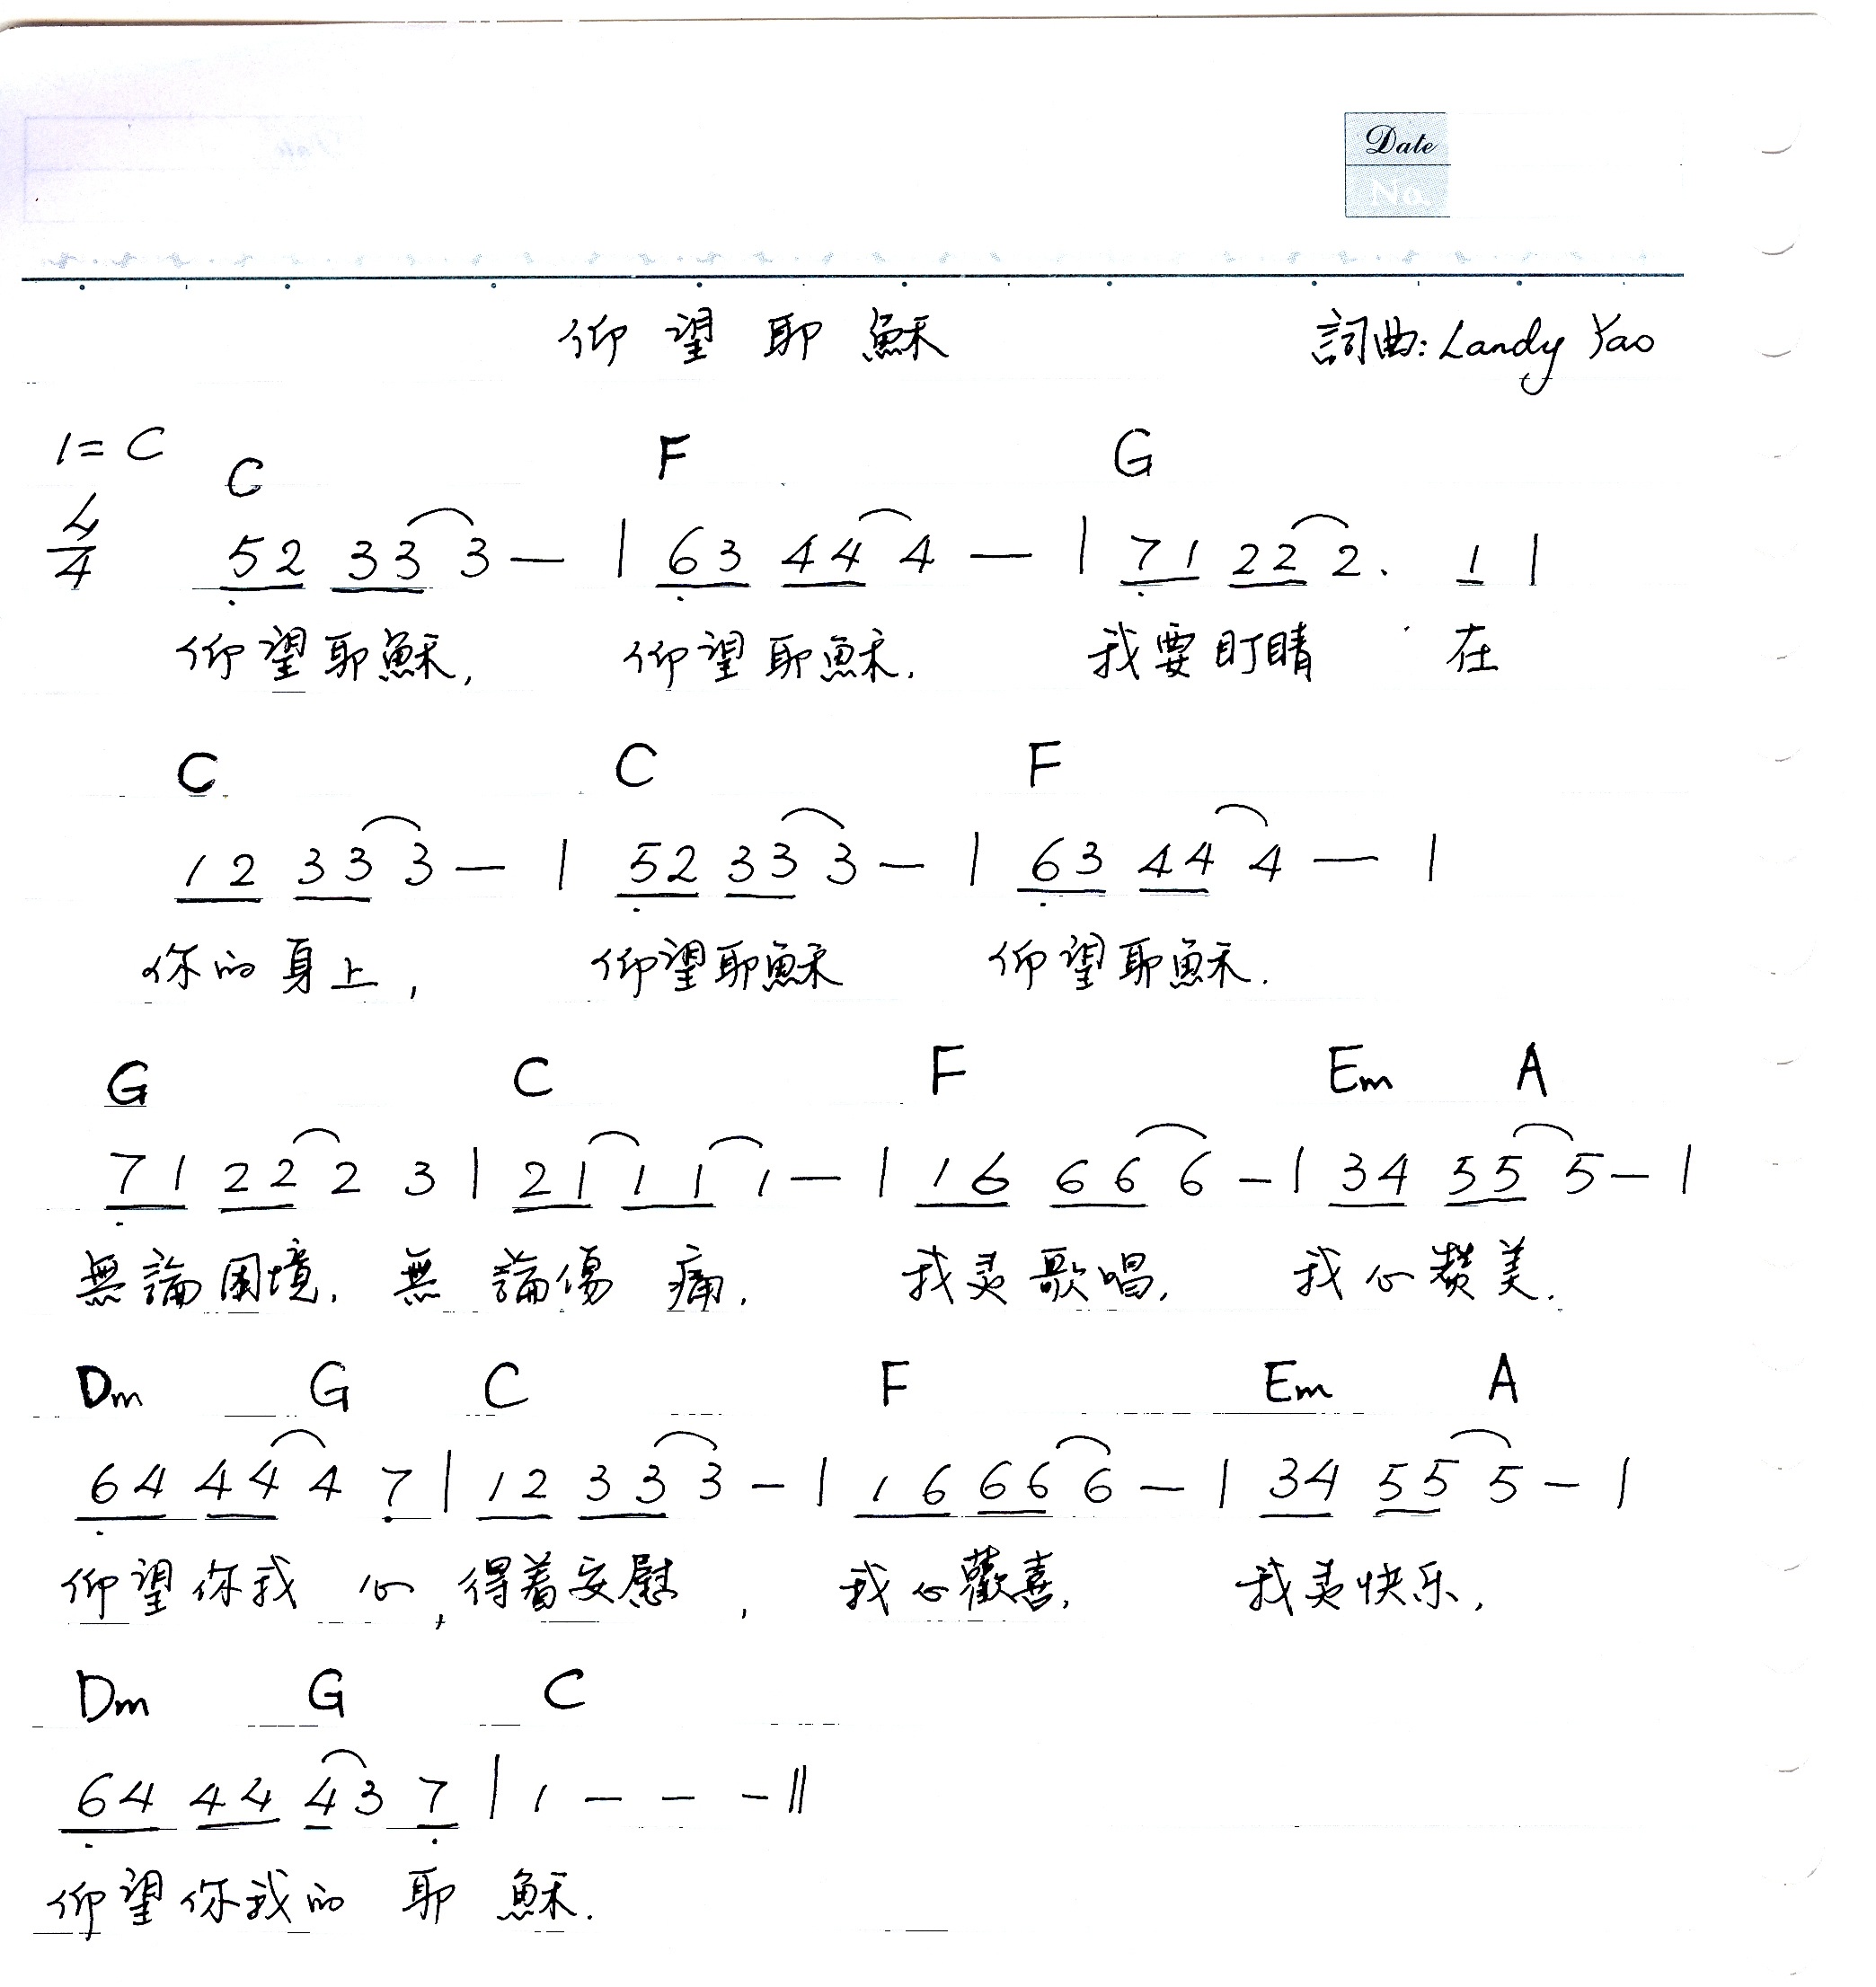 Date
No.
仰望耶穌 詞曲: Landy Yao
1=C C F G
4/4 52 33 3 — | 63 44 4 — | 71 22 2. 1 |
仰望耶穌, 仰望耶穌. 我要盯睛 在
C C F
12 33 3 — | 52 33 3 — | 63 44 4 — |
你的身上, 仰望耶穌 仰望耶穌.
G C F Em A
71 22 2 3 | 21 11 1 — | 16 66 6 — | 34 55 5 — |
無論困境, 無 論傷 痛. 我灵歌唱, 我心赞美.
Dm G C F Em A
64 44 4 7 | 12 33 3 — | 16 66 6 — | 34 55 5 — |
仰望你我 心, 得着安慰, 我心歡喜, 我灵快乐,
Dm G C
64 44 43 7 | 1 - - - ||
仰望你我的 耶 穌.